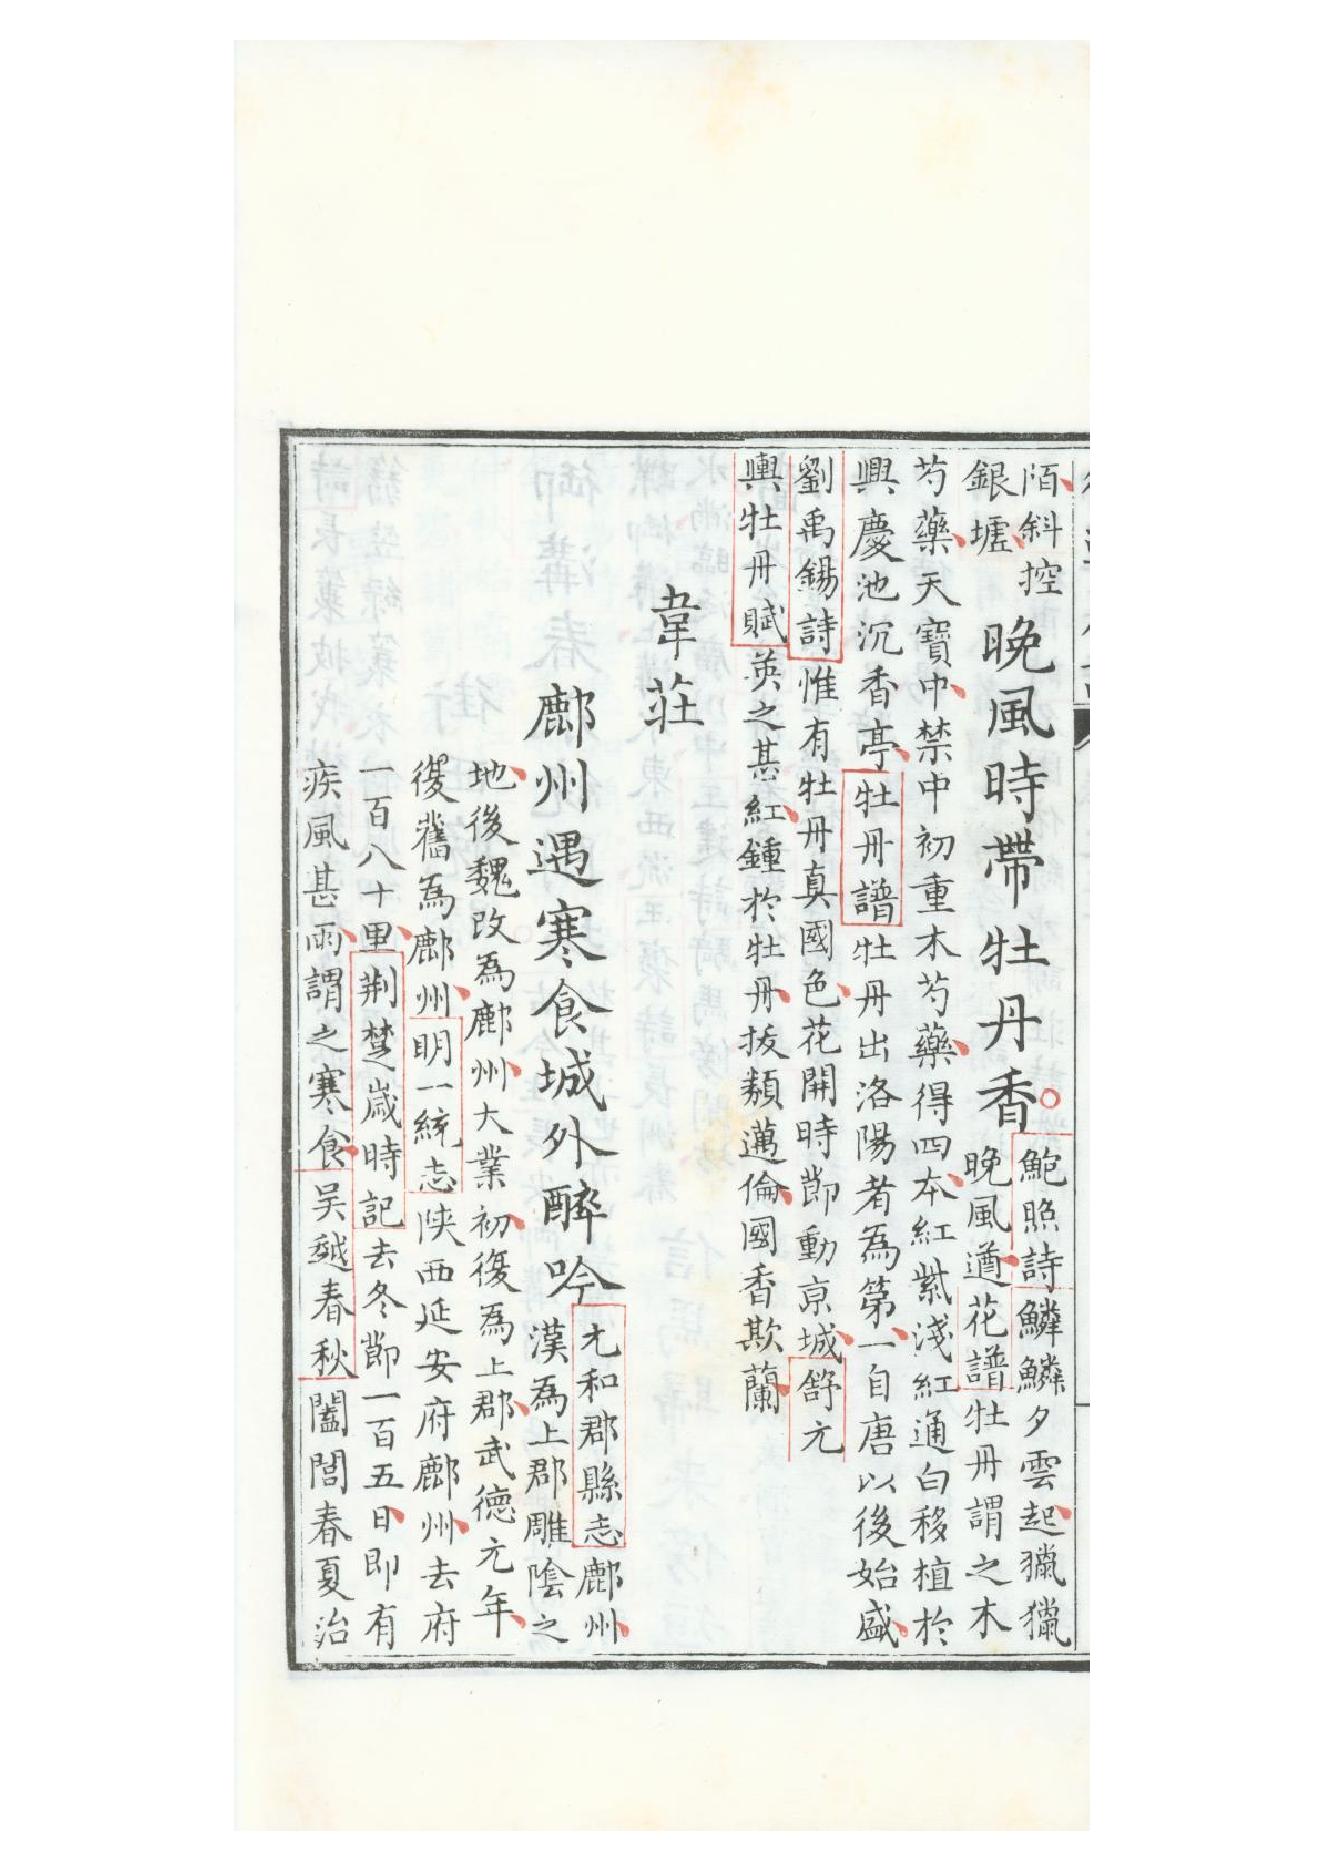 陌斜控
銀壚
晚風時帶牡丹香
鮑照詩鱗鱗夕雲起獵獵
晚風遒花譜牡丹謂之木
芍藥天寶中禁中初重木芍藥得四本紅紫淺紅通白移植於
興慶池沉香亭牡丹譜牡丹出洛陽者為第一自唐以後始盛
劉禹錫詩惟有牡丹真國色花開時節動京城舒元
輿牡丹賦英之甚紅鍾於牡丹拔類邁倫國香欺蘭
韋莊
鄜州遇寒食城外醉吟
元和郡縣志鄜州
漢為上郡雕陰之
地後魏改為鄜州大業初復為上郡武德元年
復舊為鄜州明一統志陝西延安府鄜州去府
一百八十里荆楚歲時記去冬節一百五日即有
疾風甚雨謂之寒食吳越春秋闔閭春夏治